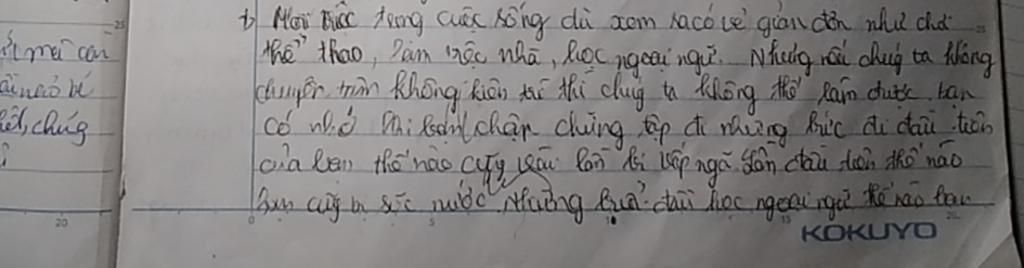 Mọi việc trong cuộc sống dù xem ra có vẻ giản đơn như chơi
ết mà còn thể thao, làm việc nhà, học ngoại ngữ. Nhưng nếu chúng ta không
chuyên tâm không kiên trì thì chúng ta không thể làm được bạn
chúng có nhớ khi bạn chập chững tập đi những bước đi đầu tiên
của bạn thế nào cũng lần bị vấp ngã lần đầu tiên thế nào
bạn cũng bị sặc nước. Những buổi đầu học ngoại ngữ thế nào bạn
20 0 5 10 15 20
KOKUYO